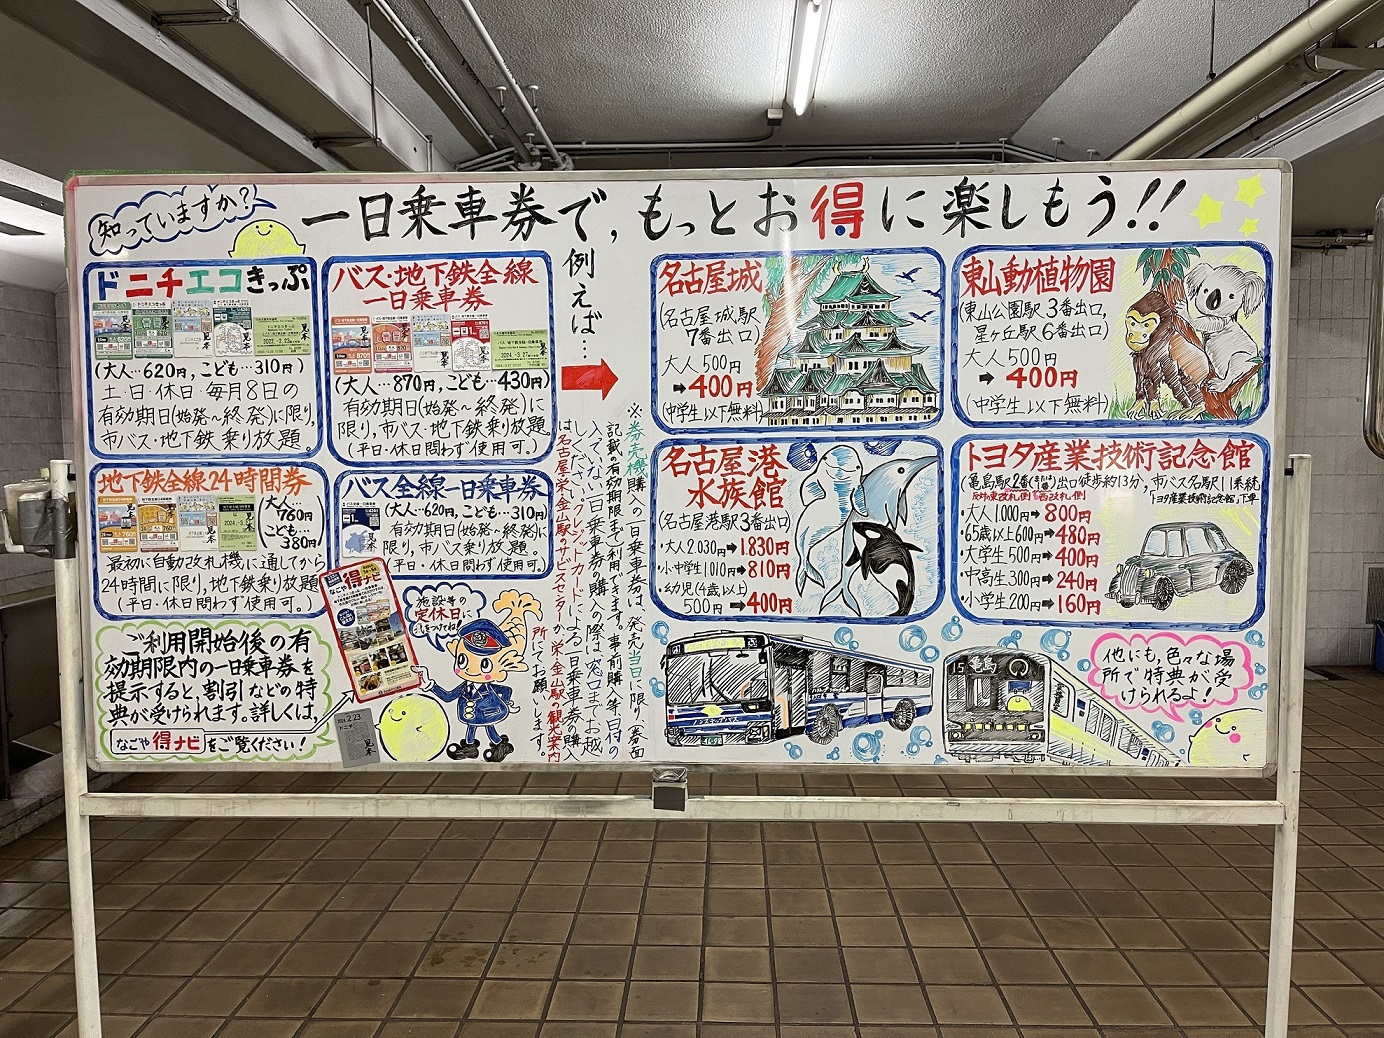 知っていますか?
一日乗車券で、もっとお得に楽しもう!!
ドニチエコきっぷ
(大人…620円、こども…310円)
土・日・休日・毎月8日の
有効期日(始発~終発)に限り、
市バス・地下鉄乗り放題。
バス・地下鉄全線
一日乗車券
(大人…870円、こども…430円)
有効期日(始発~終発)に
限り、市バス・地下鉄乗り放題。
(平日・休日問わず使用可。)
地下鉄全線24時間券
大人…
760円
こども…
380円
最初に自動改札機に通してから
24時間に限り、地下鉄乗り放題
(平日・休日問わず使用可。)
バス全線一日乗車券
(大人…620円、こども…310円)
有効期日(始発~終発)に
限り、市バス乗り放題。
(平日・休日問わず使用可。)
ご利用開始後の有
効期限内の一日乗車券を
提示すると、割引などの特
典が受けられます。詳しくは、
なごや得ナビをご覧ください!
なごや得ナビ
施設等の
定休日に
気をつけてね!
見本
例えば…
※券売機購入の一日乗車券は、発売当日に限り、(券面
記載の有効期限まで)利用できます。事前購入等(日付の
入っていない)一日乗車券の購入の際は、窓口までお越
しください。クレジットカードによる一日乗車券の購入
は名古屋・栄・金山駅のサービスセンターか、栄・金山駅の観光案内
所にてお願いします。
名古屋城
(名古屋城駅
7番出口)
大人500円
➡400円
(中学生以下無料)
東山動植物園
(東山公園駅3番出口、
星ヶ丘駅6番出口)
大人500円
➡400円
(中学生以下無料)
名古屋港
水族館
(名古屋港駅3番出口)
・大人2.030➡1.830円
・小中学生1010➡810円
・幼児(4歳以上)
500円➡400円
トヨタ産業技術記念館
(亀島駅2番出口徒歩約13分、市バス名駅11系統
トヨタ産業技術記念館、下車)
・大人1.000円➡800円
・65歳以上600円➡480円
・大学生500円➡400円
・中高生300円➡240円
・小学生200円➡160円
ノンステップバス
15
亀島
他にも、色々な場
所で特典が受
けられるよ!